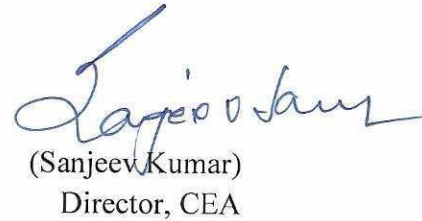 (Sanjeev Kumar)
Director, CEA